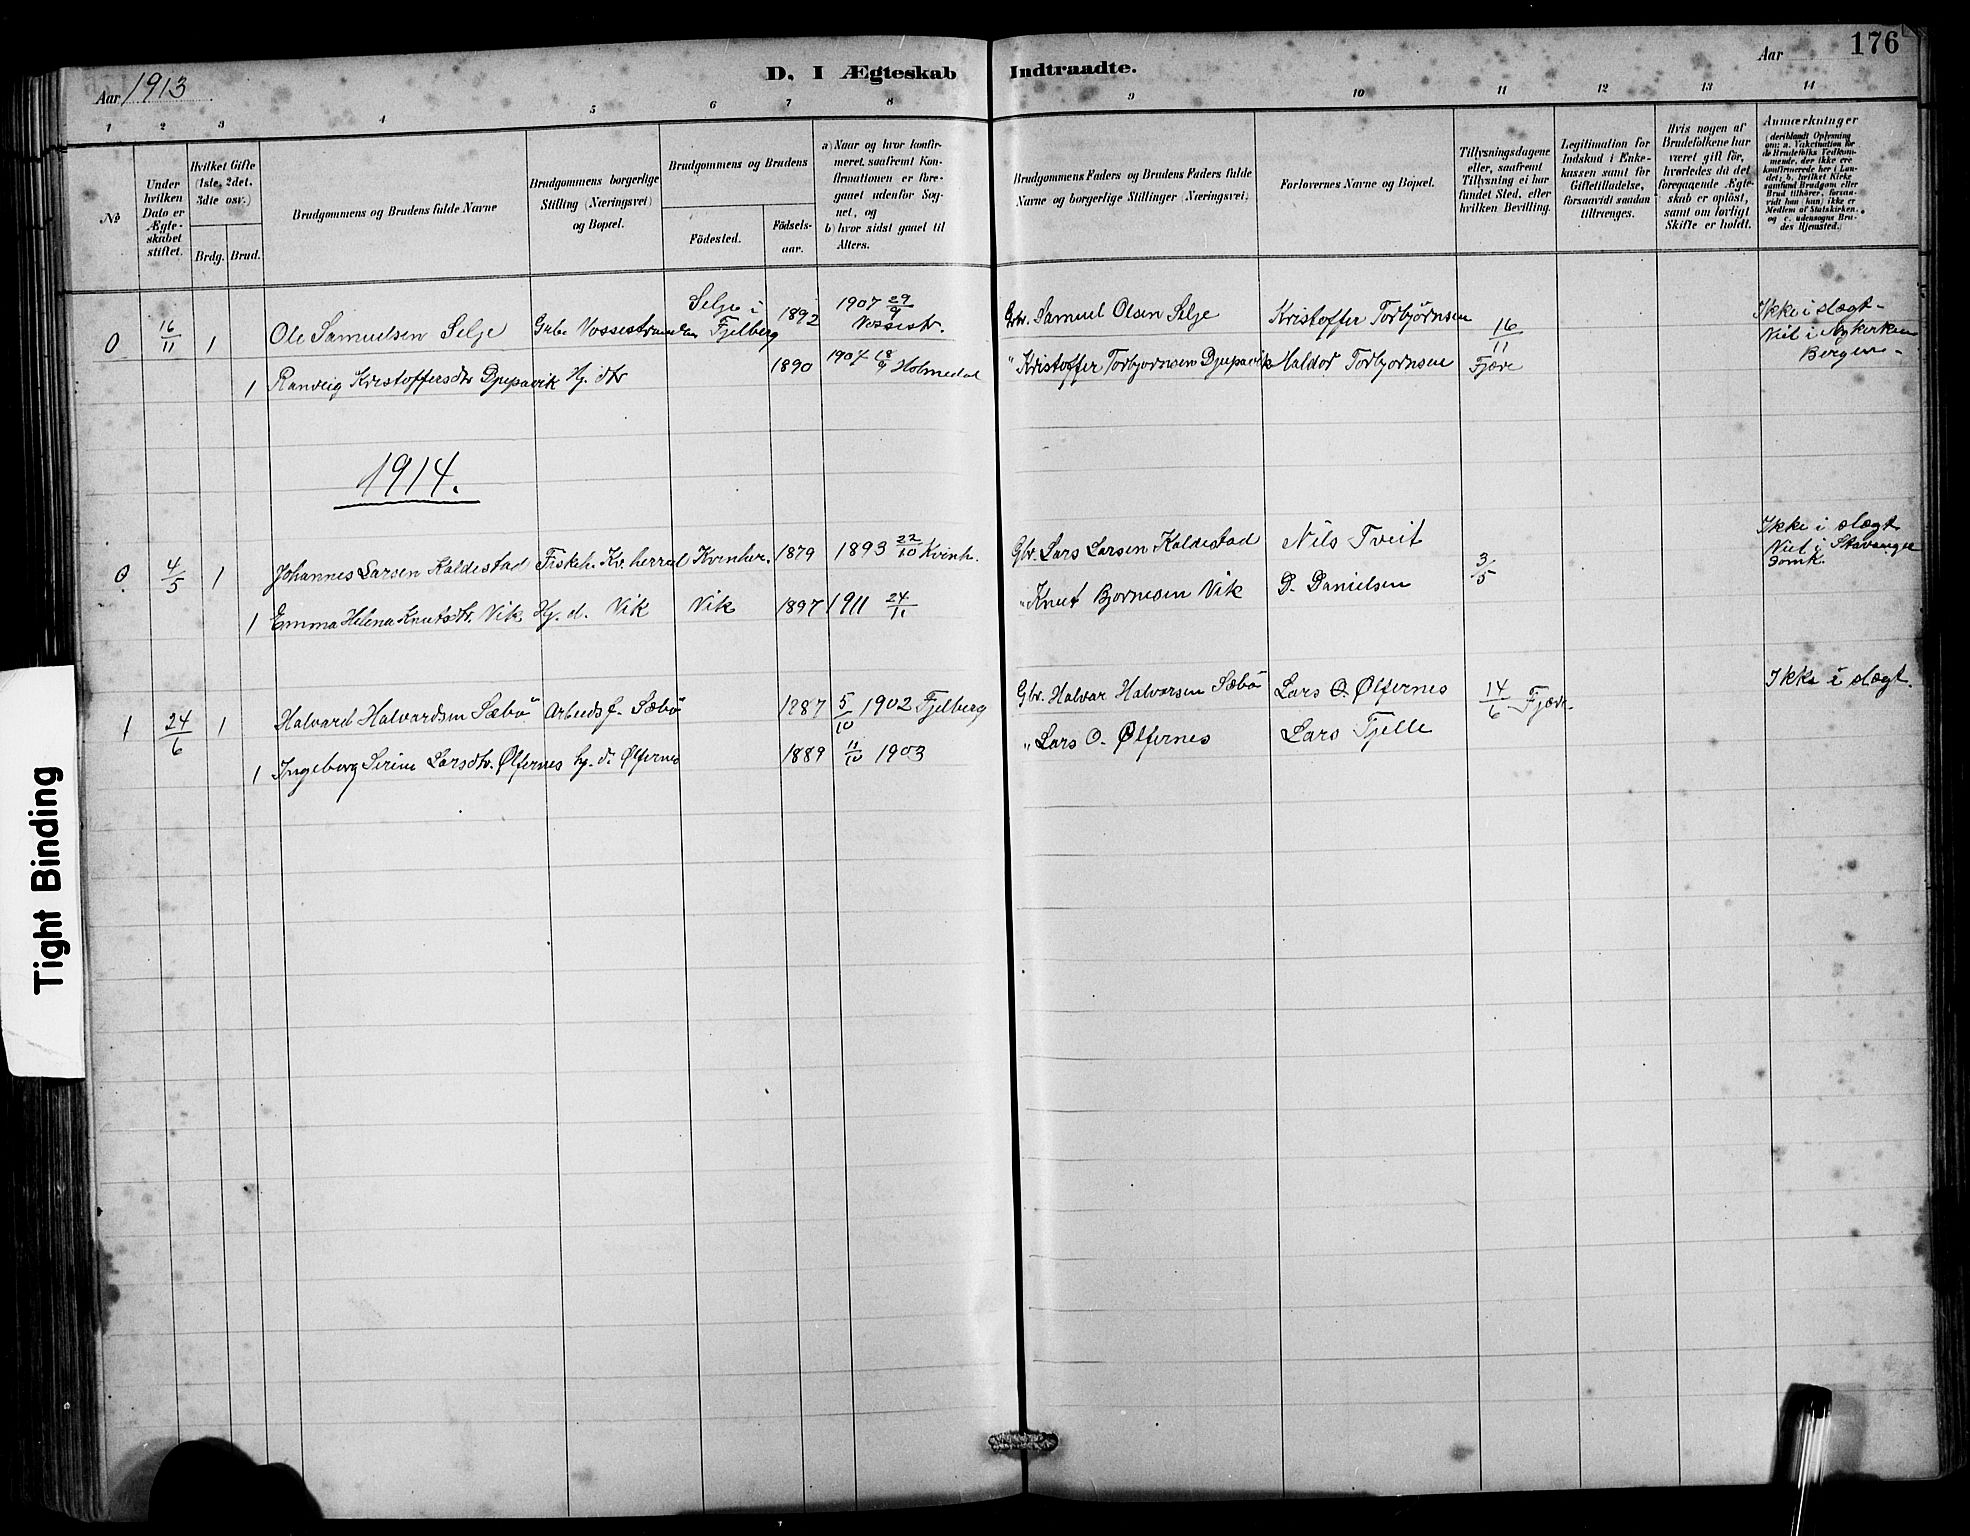 Aar 1913
D. I Ægteskab Indtraadte.
Aar
176
1 2 3 4 5 6 7 8 9 10 11 12 13 14
No
Under hvilken Dato er Ægteskabet stiftet.
Hvilket Gifte (1ste, 2det, 3dte osv.)
Brdg. Brud.
Brudgommens og Brudens fulde Navne
Brudgommens borgerlige Stilling (Næringsvei) og Bopæl.
Brudgommens og Brudens
Födested.
Födselsaar.
a) Naar og hvor konfirmeret, saafremt Konfirmationen er foregaaet udenfor Sognet, og
b) hvor sidst gaaet til Alters.
Brudgommens Faders og Brudens Faders fulde Navne og borgerlige Stillinger (Næringsvei)
Forlovernes Navne og Bopæl.
Tillysningsdagene eller, saafremt Tillysning ei har fundet Sted, efter hvilken Bevilling.
Legitimation for Indskud i Enkekassen samt for Giftetilladelse, forsaavidt saadan tiltrænges.
Hvis nogen af Brudefolkene har været gift för, hvorledes da det foregaaende Ægteskab er oplöst, samt om lovligt Skifte er holdt.
Anmærkninger
(deriblandt Oplysning om: a. Vakcination for de Brudefolks Vedkommende, der ikke ere konfirmerede her i Landet; b. hvilket Kirkesamfund Brudgom eller Brud tilhörer, forsaavidt han (hun) ikke er Medlem af Statskirken, og c. udensogns Brudes Hjemsted.)
0 16/11 1 Ole Samuelsen Selje Grbr. Vossestranden Selje i Fjelberg 1892 1907 29/9 Vossestr. Gbr. Samuel Olsen Selje Kristoffer Torbjørnsen 16/11 Ikke i slægt
1 Ranveig Kristoffersdtr Djupavik Hj. dtr 1890 1904 18/9 Holmedal " Kristoffer Torbjørnsen Djupavik Haldor Torbjørnsen Fjære Viet i Nykirken Bergen
1914.
0. 4/5 1 Johannes Larsen Kaldestad Fiskeh. Kv.herred Kvinher. 1879 1893 22/10 Kvinh. Gbr. Lars Larsen Kaldestad Nils Tveit 3/5 Ikke i slægt
Viet i Stavanger Domk.
1 Emma Helena Knutsdtr. Vik Hj. d. Vik Vik 1897 1911 24/11 " Knut Bjørnesen Vik D. Danielsen
1 24/6 1 Halvard Halvardsen Sæbö Arbeidsf. Sæbö 1887 5/10 1902 Fjelberg Gbr. Halvar Halvarsen Sæbö Lars O. Ølfernes 14/6 Fjære Ikke i slægt.
1 Ingeborg Sirine Larsdtr. Ølfernes hj. d. Ølfernes 1889 11/10 1903 " Lars O. Ølfernes Lars Tjelle
Tight Binding